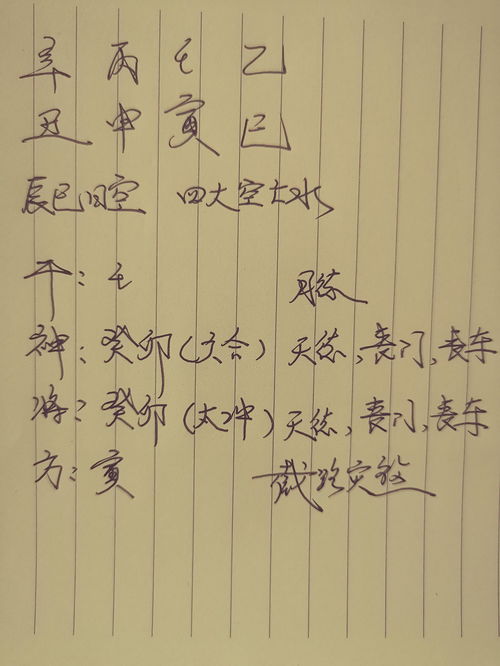 辛 丙 壬 乙
丑 申 寅 巳
辰巳日空 四大空亡水
干：壬 月德
神：癸卯（六合）天德，丧门，丧车
将：癸卯（太冲）天德，丧门，丧车
方：寅 截路灾煞